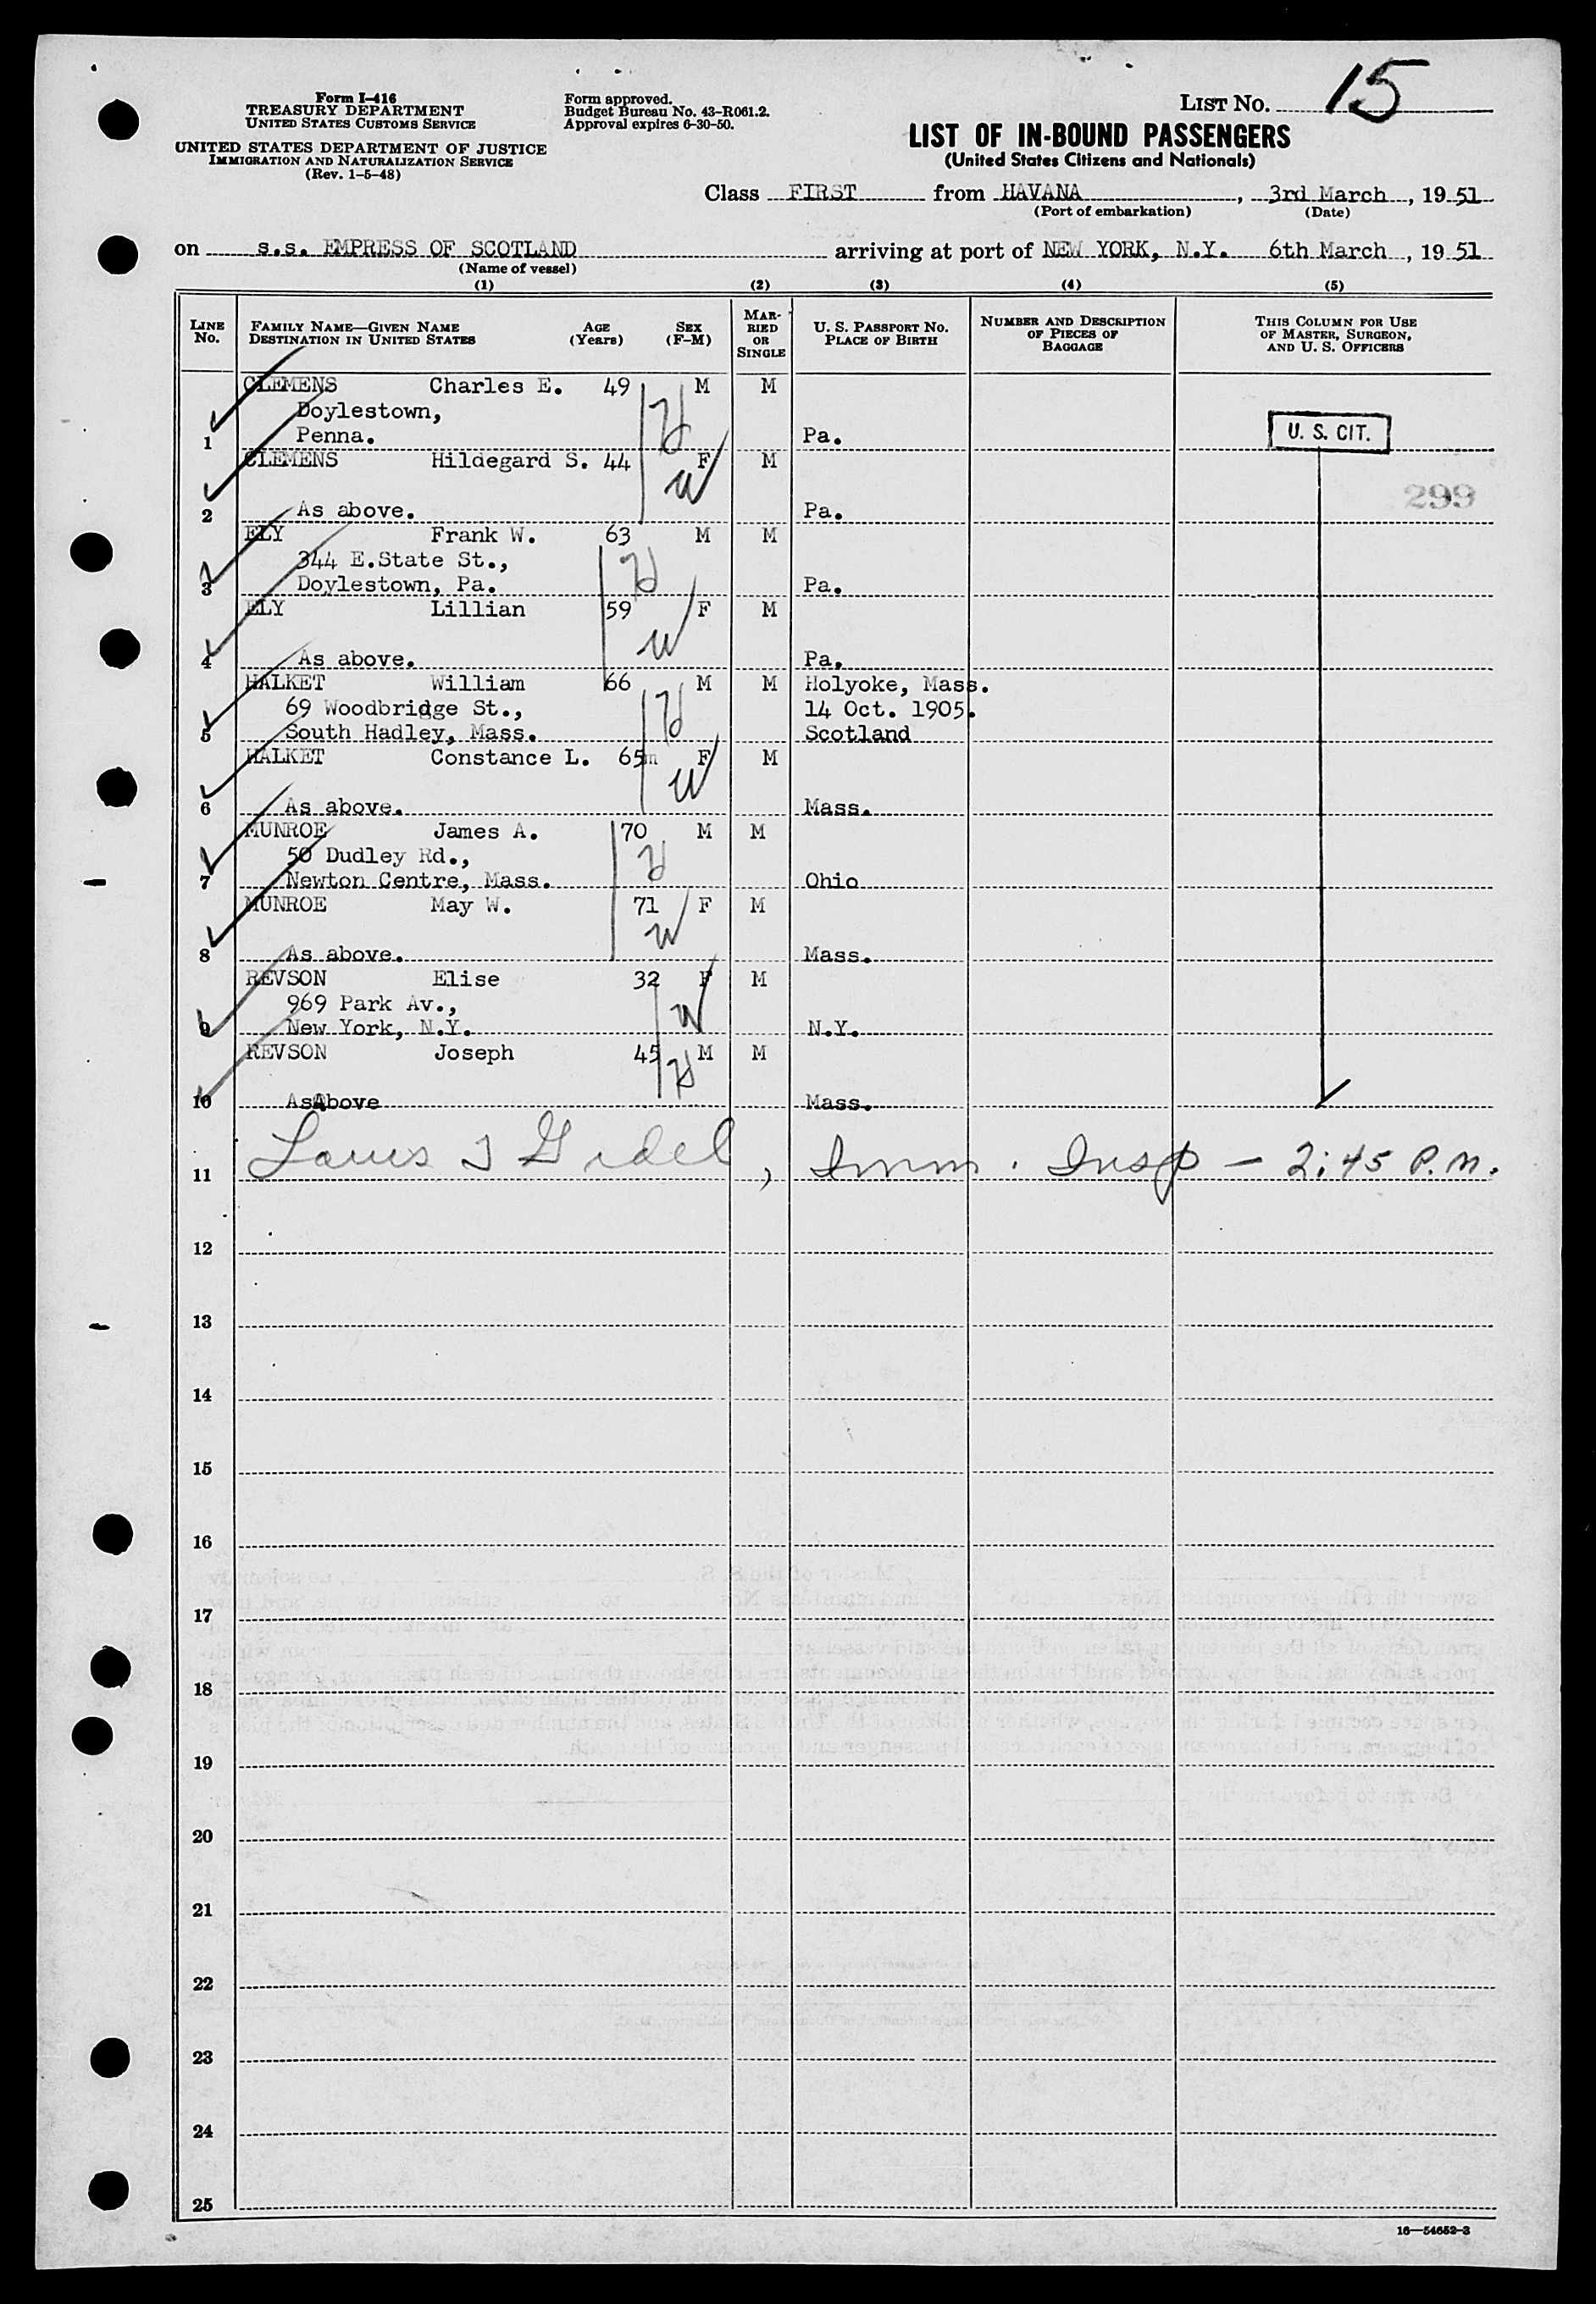 Form I-416
TREASURY DEPARTMENT
UNITED STATES CUSTOMS SERVICE
UNITED STATES DEPARTMENT OF JUSTICE
IMMIGRATION AND NATURALIZATION SERVICE
(Rev. 1-5-48)
Form approved.
Budget Bureau No. 43-R061.2.
Approval expires 6-30-50.
LIST NO. 15
LIST OF IN-BOUND PASSENGERS
(United States Citizens and Nationals)
Class FIRST from HAVANA, 3rd March, 1951
(Port of embarkation) (Date)
on s.s. EMPRESS OF SCOTLAND arriving at port of NEW YORK, N.Y. 6th March, 1951
(Name of vessel)
(1) (2) (3) (4) (5)
LINE No.
FAMILY NAME—GIVEN NAME DESTINATION IN UNITED STATES
AGE (Years)
SEX (F-M)
MARRIED OR SINGLE
U. S. PASSPORT NO. PLACE OF BIRTH
NUMBER AND DESCRIPTION OF PIECES OF BAGGAGE
THIS COLUMN FOR USE OF MASTER, SURGEON, AND U. S. OFFICERS
CLEMENS Charles E. 49 M M
Doylestown,
1 Penna. Pa. U. S. CIT.
CLEMENS Hildegard S. 44 F M
299
2 As above. Pa.
ELY Frank W. 63 M M
344 E.State St.,
3 Doylestown, Pa. Pa.
ELY Lillian 59 F M
4 As above. Pa.
HALKET William 66 M M Holyoke, Mass.
69 Woodbridge St., 14 Oct. 1905.
5 South Hadley, Mass. Scotland
HALKET Constance L. 65m F M
6 As above. Mass.
MUNROE James A. 70 M M
50 Dudley Rd.,
7 Newton Centre, Mass. Ohio
MUNROE May W. 71 F M
8 As above. Mass.
REVSON Elise 32 F M
969 Park Av.,
9 New York, N.Y. N.Y.
REVSON Joseph 45 M M
10 AsAbove Mass.
11 Louis, Imm. Insp — 2:45 P.M.
12
13
14
15
16
17
18
19
20
21
22
23
24
25
16—54652-3